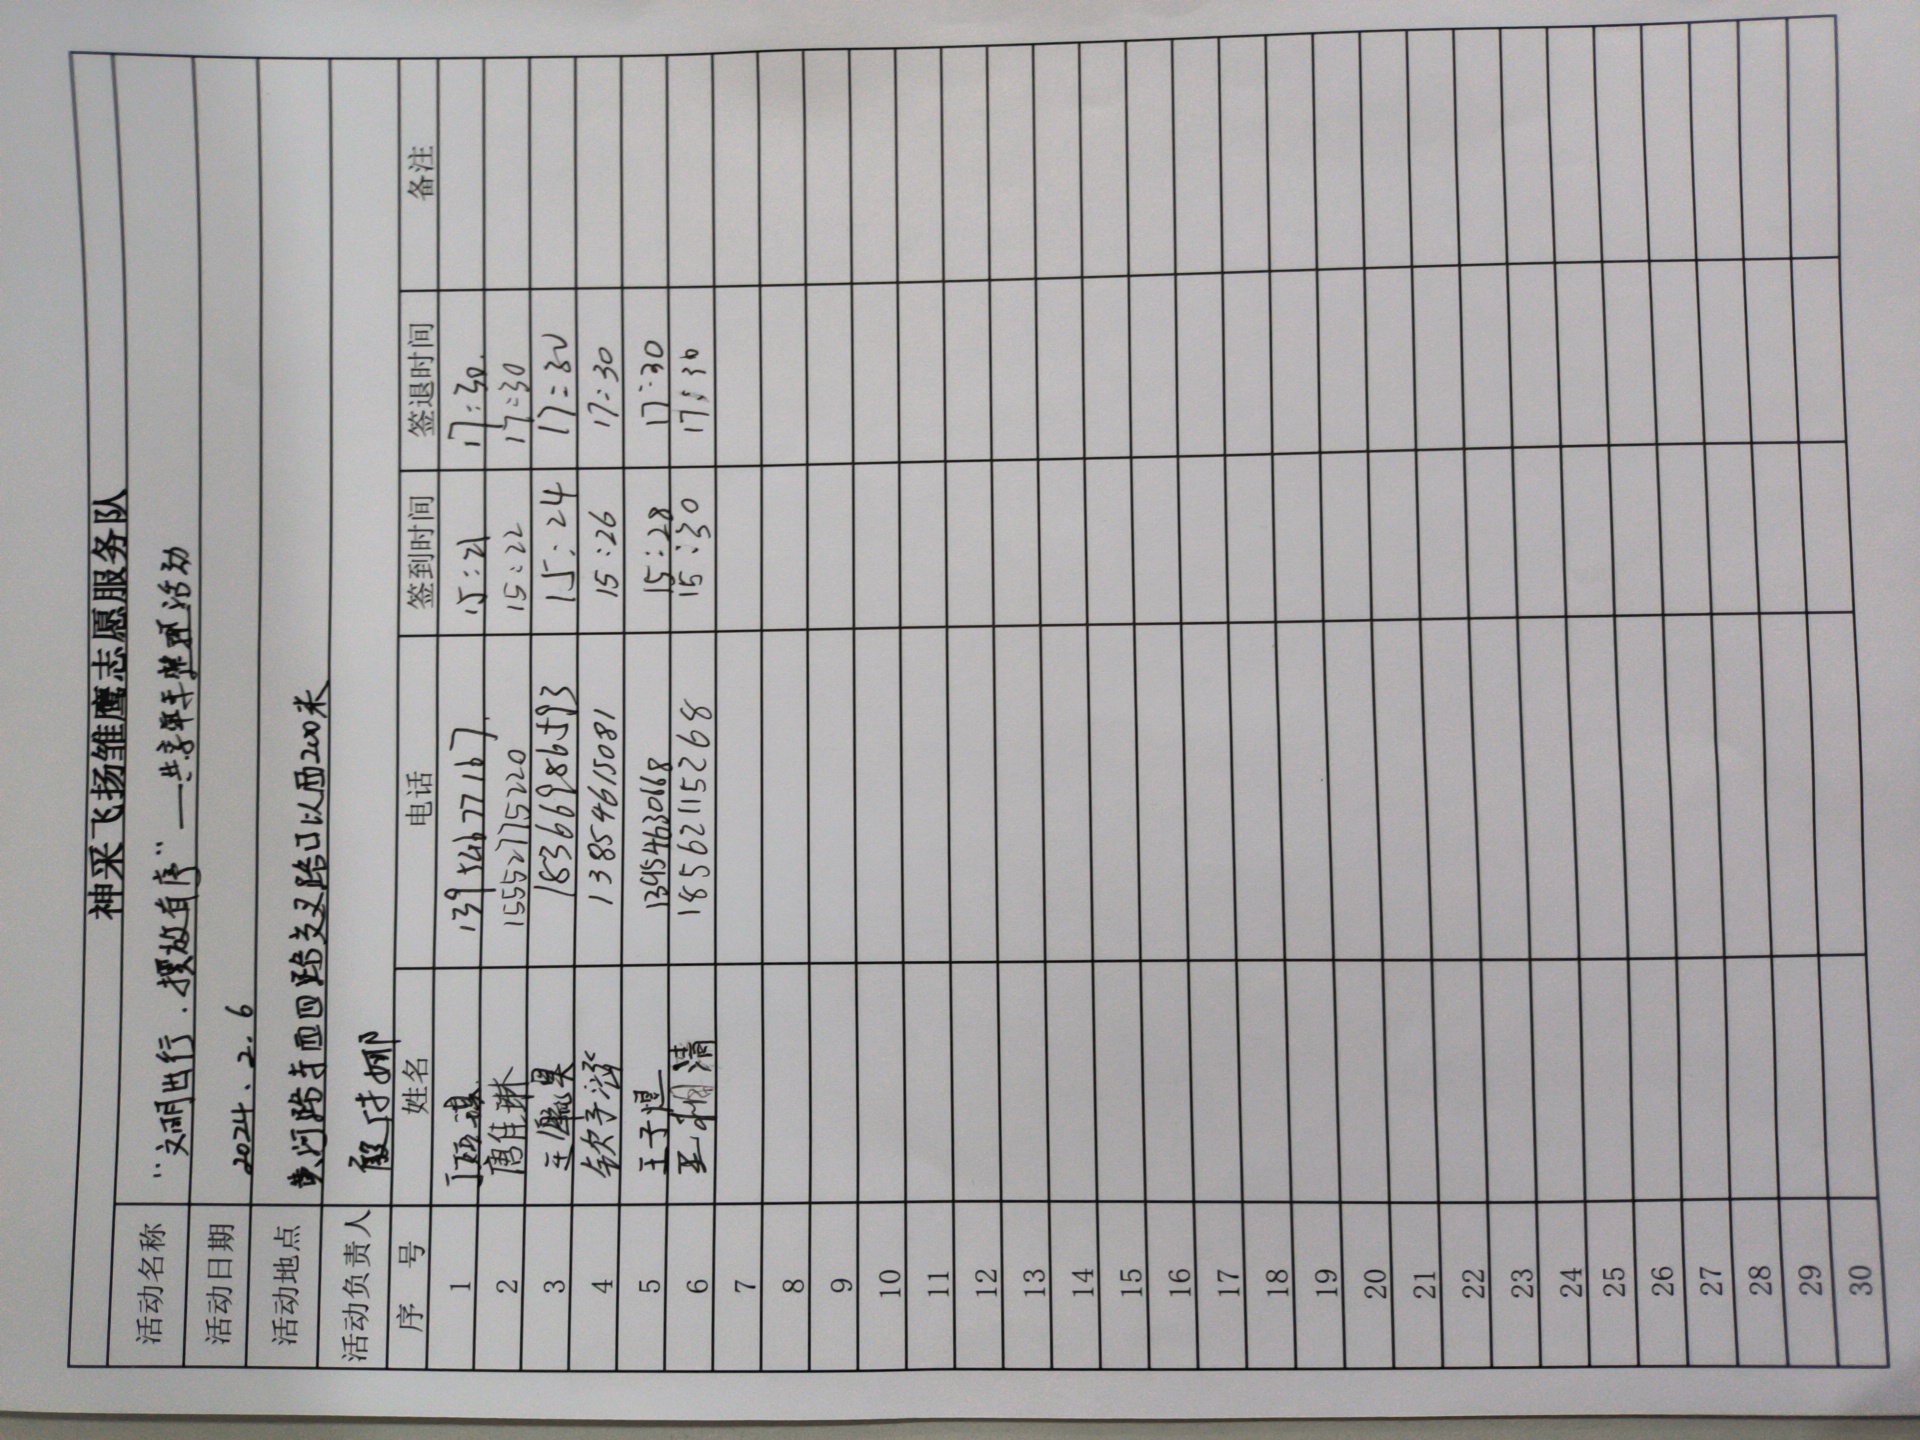 神采飞扬雏鹰志愿服务队
活动名称 "文明西行.摆放有序"—共享单车整理活动
活动日期 2024.2.6
活动地点 黄河路与西四路交叉路口以西200米
活动负责人 殷付娜
序号 姓名 电话 签到时间 签退时间 备注
1 13954677167 15:21 17:30
2 唐佳琳 15552775220 15:22 17:30
3 18366986593 15:24 17:30
4 13854615081 15:26 17:30
5 王子煜 13954630168 15:28 17:30
6 清 18562115268 15:30 17:30
7
8
9
10
11
12
13
14
15
16
17
18
19
20
21
22
23
24
25
26
27
28
29
30